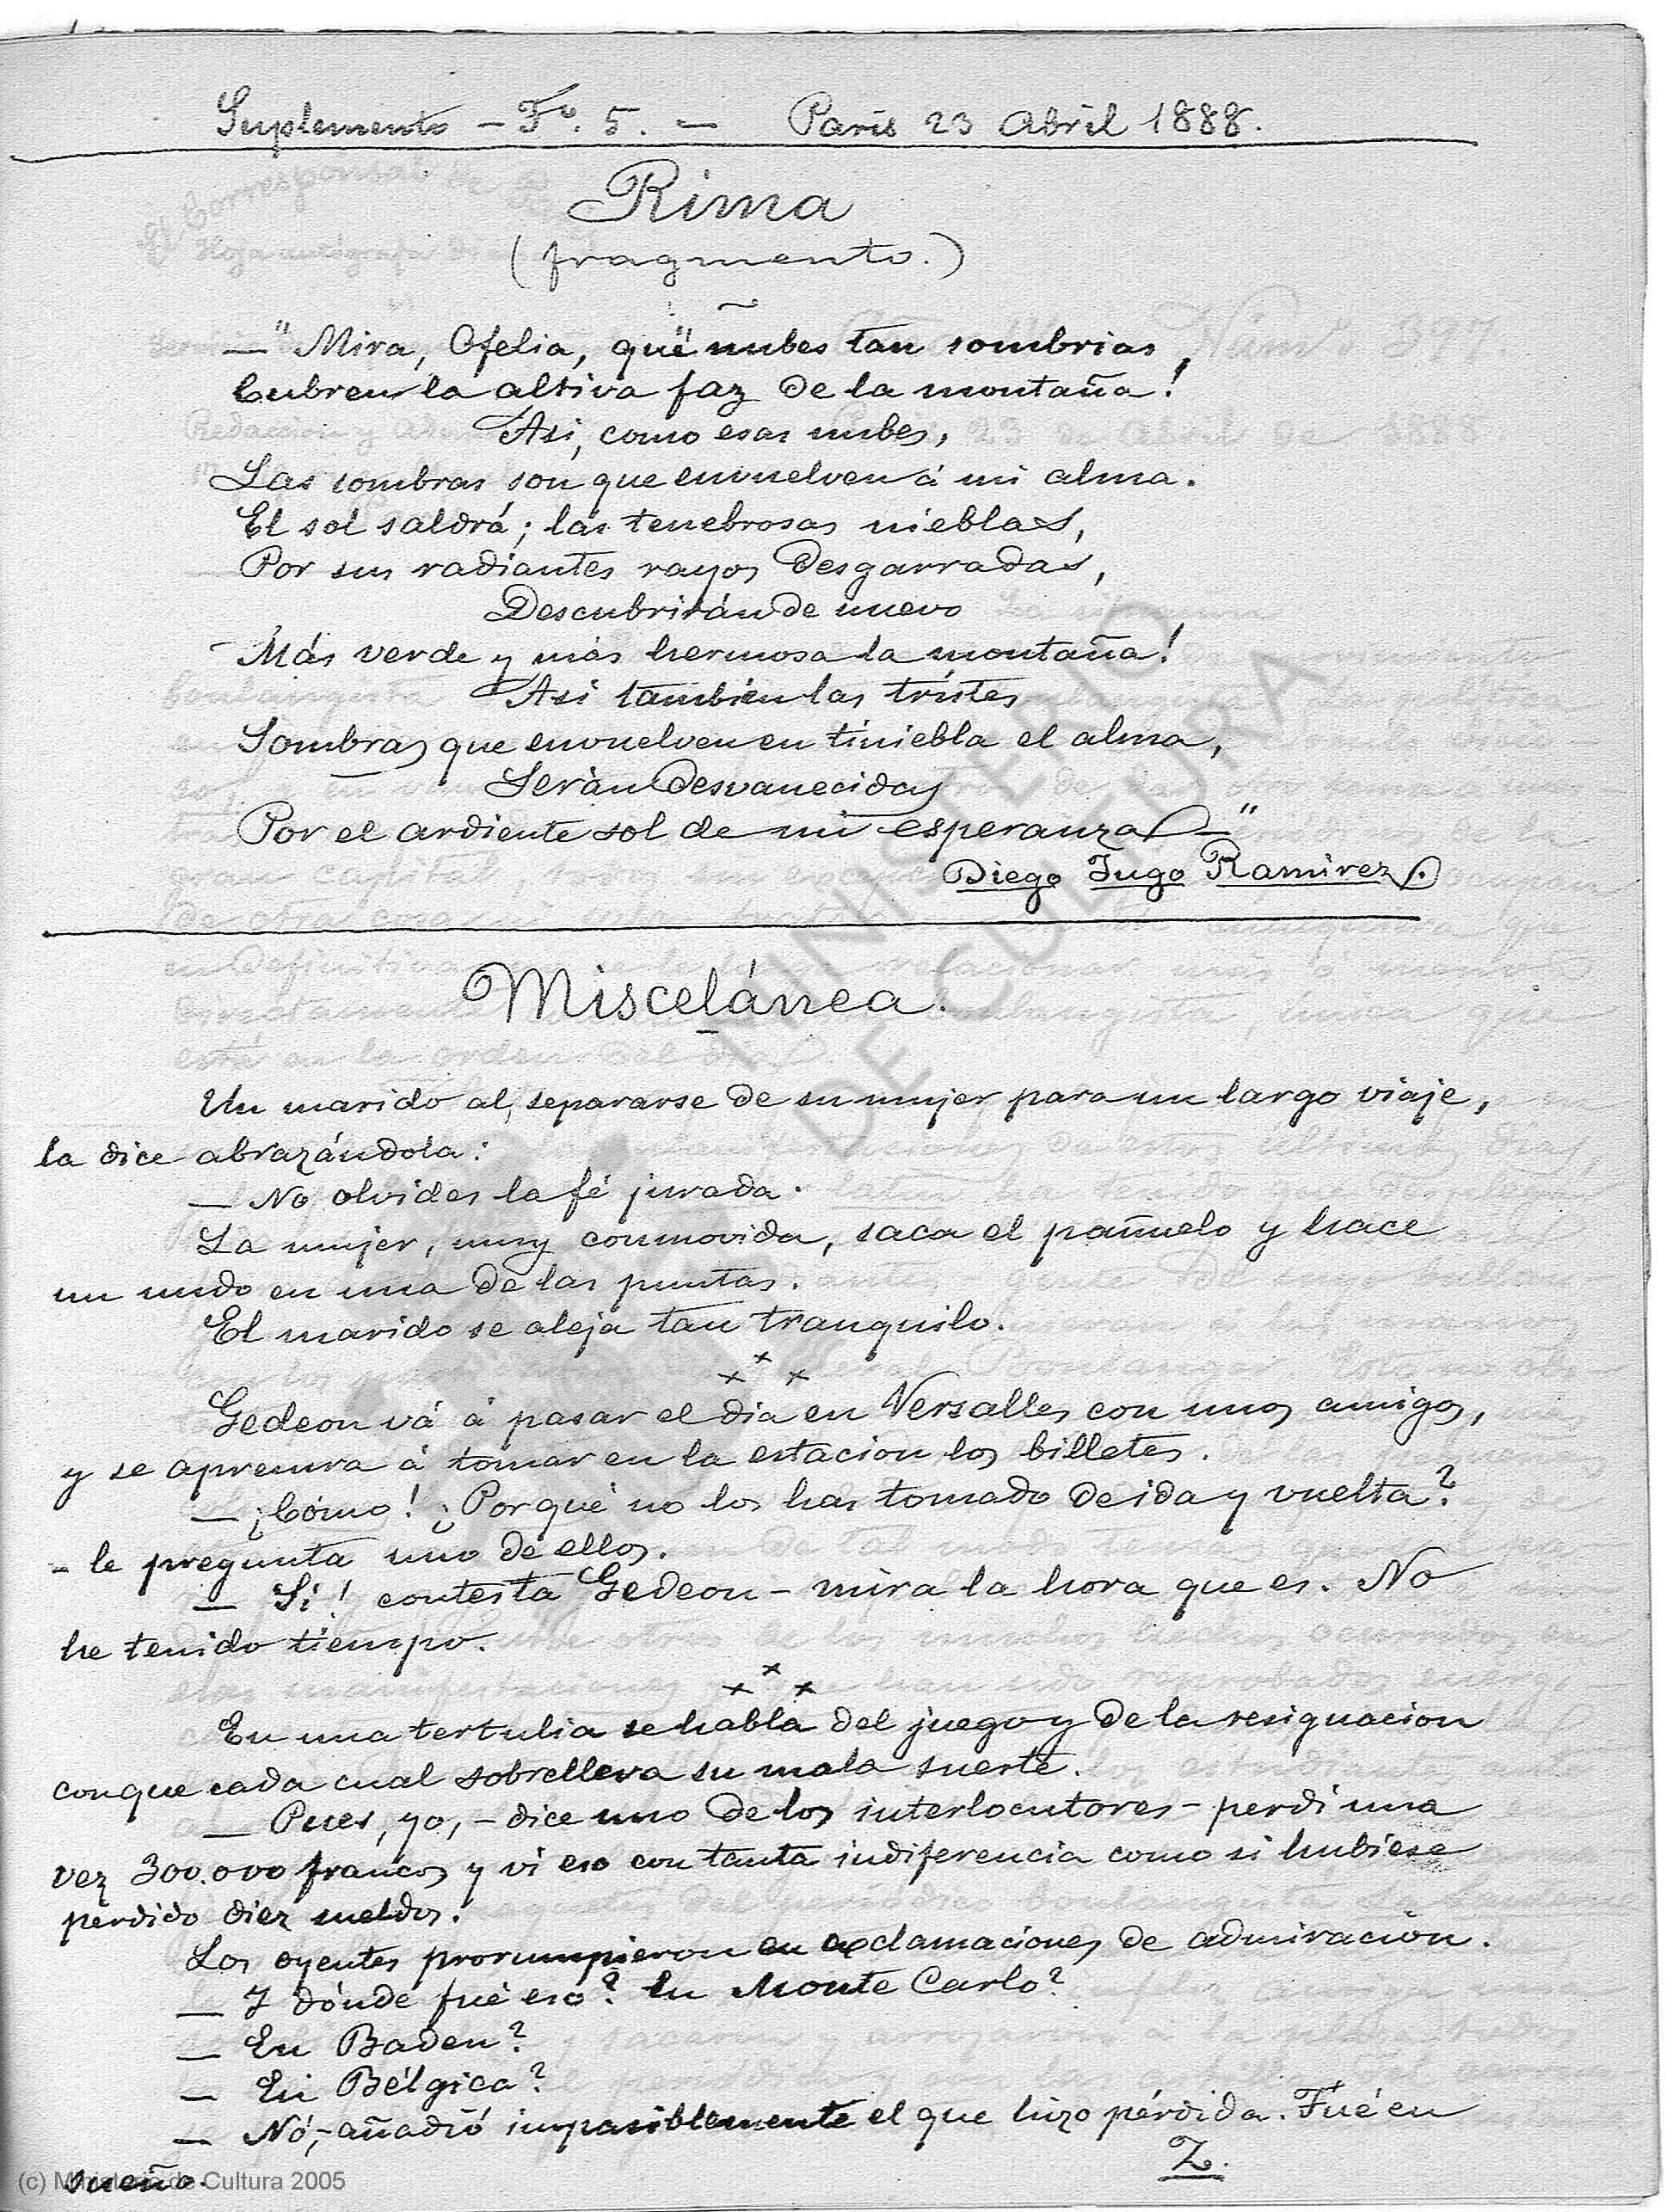 Suplemento – Fº. 5. – Paris 23 Abril 1888.
Rima
(fragmento.)
— "Mira, Ofelia, qué nubes tan sombrias,
Cubren la altiva faz de la montaña!
Asi, como esas nubes,
Las sombras son que envuelven á mi alma.
El sol saldrá; las tenebrosas nieblas,
Por sus radiantes rayos desgarradas,
Descubrirán de nuevo
Más verde y más hermosa la montaña!
Asi tambien las tristes
Sombras que envuelven en tiniebla el alma,
Serán desvanecidas
Por el ardiente sol de mi esperanza —"
Diego Jugo Ramirez.
Miscelánea.
Un marido al separarse de su mujer para un largo viaje,
la dice abrazándola:
— No olvides la fé jurada.
La mujer, muy conmovida, saca el pañuelo y hace
un nudo en una de las puntas.
El marido se aleja tan tranquilo.
x x x
Gedeon vá á pasar el dia en Versalles con unos amigos,
y se apresura á tomar en la estacion los billetes.
— ¡Cómo! ¿Por qué no los has tomado de ida y vuelta?
- le pregunta uno de ellos.
— Si! contesta Gedeon – mira la hora que es. No
he tenido tiempo.
x x x
En una tertulia se habla del juego y de la resignacion
con que cada cual sobrelleva su mala suerte.
— Pues, yo, – dice uno de los interlocutores – perdi una
vez 300.000 francos y vi eso con tanta indiferencia como si hubiese
perdido diez sueldos.
Los oyentes prorrumpieron en exclamaciones de admiración.
— Y dónde fué eso? En Monte Carlo?
— En Baden?
— En Bélgica?
— Nó, – añadió impasiblemente el que hizo pérdida. Fué en
sueño.
Z.
MINISTERIO
DE CULTURA
(c) Ministerio de Cultura 2005